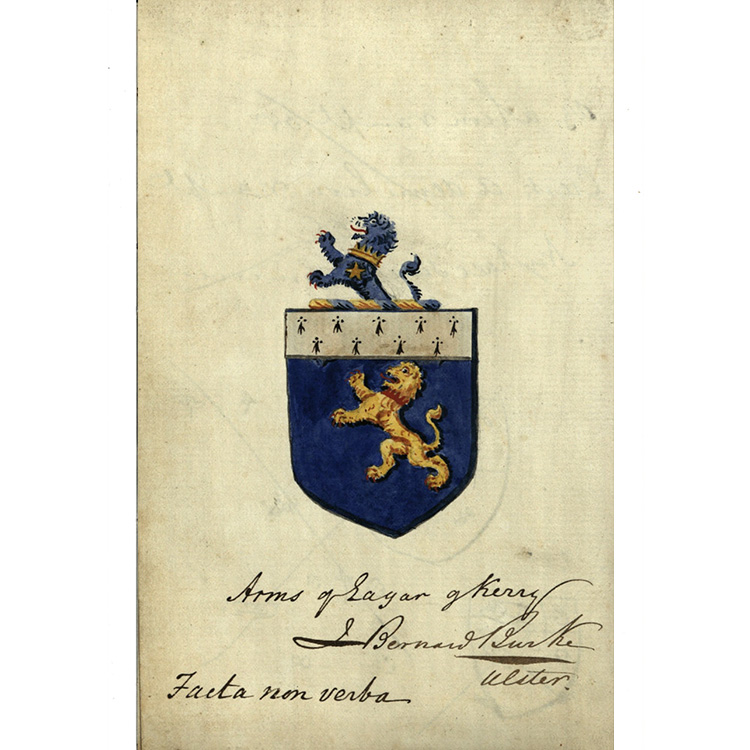 Arms of Eagar of Kerry
J Bernard Burke
Ulster.
Facta non verba